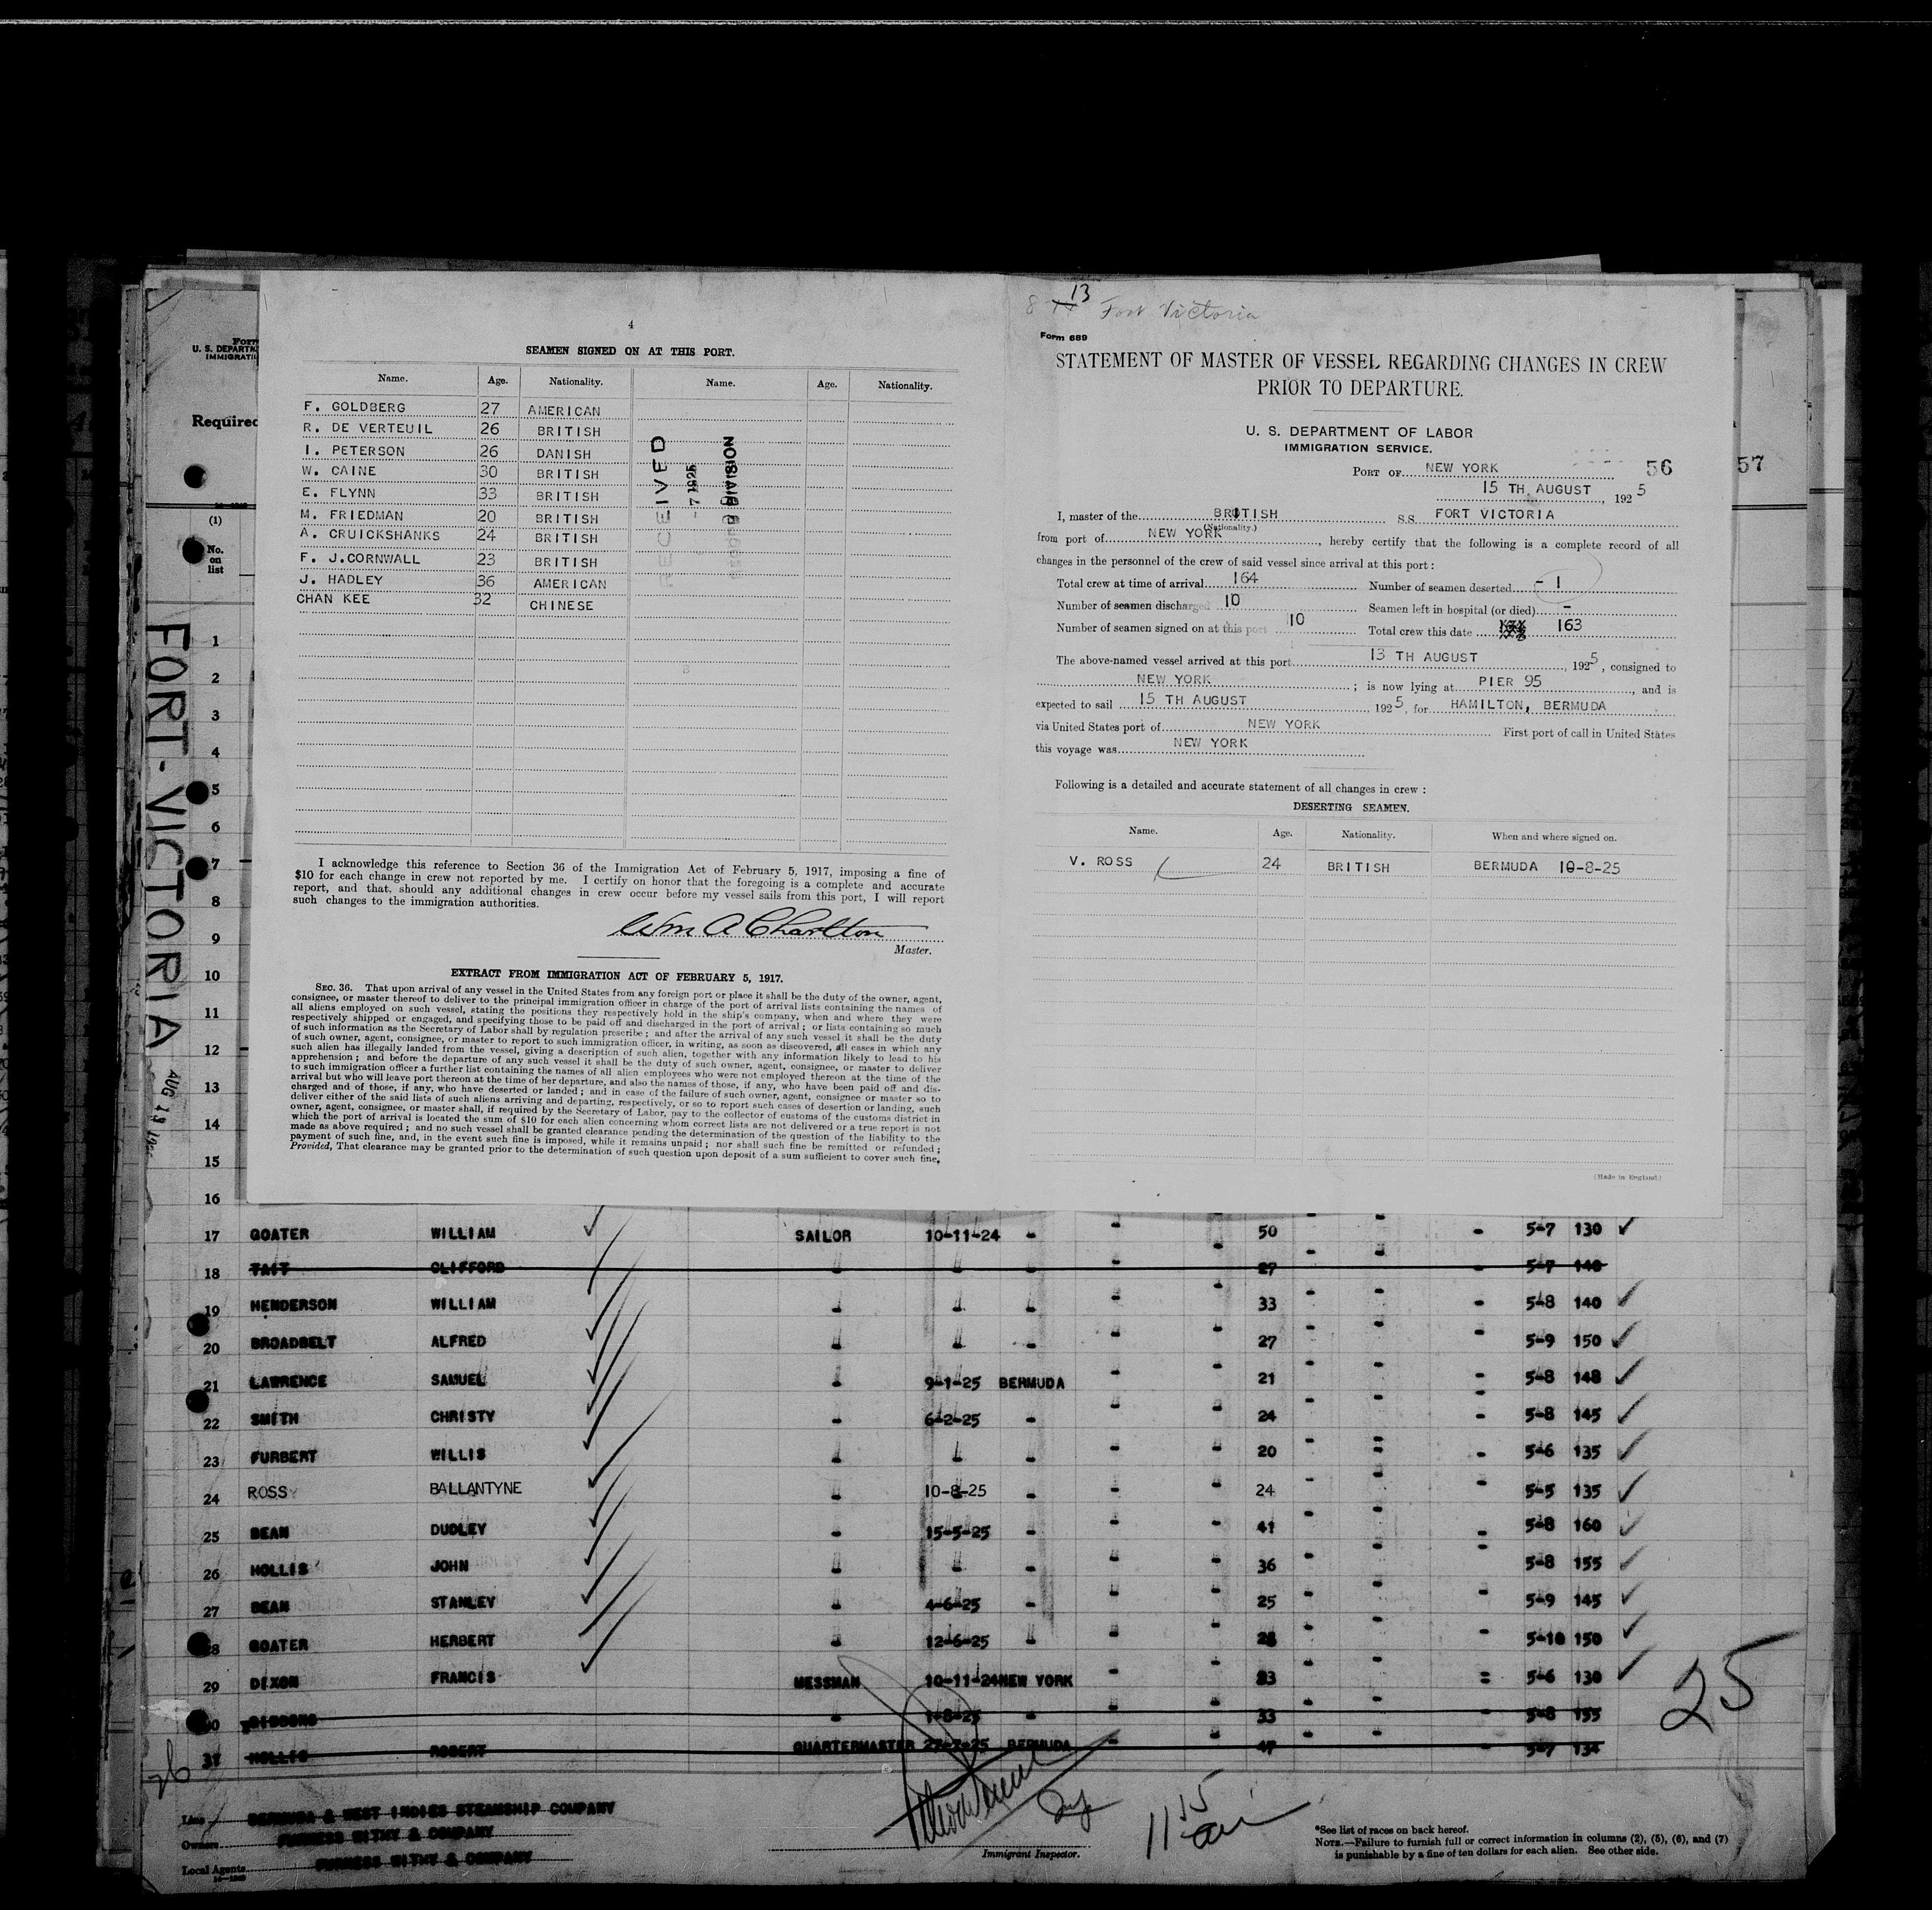 4
SEAMEN SIGNED ON AT THIS PORT.
Name. Age. Nationality. Name. Age. Nationality.
F. GOLDBERG 27 AMERICAN
R. DE VERTEUIL 26 BRITISH
I. PETERSON 26 DANISH
W. CAINE 30 BRITISH
E. FLYNN 33 BRITISH
M. FRIEDMAN 20 BRITISH
A. CRUICKSHANKS 24 BRITISH
F. J.CORNWALL 23 BRITISH
J. HADLEY 36 AMERICAN
CHAN KEE 32 CHINESE
RECEIVED
- 7 1925
DIVISION
I acknowledge this reference to Section 36 of the Immigration Act of February 5, 1917, imposing a fine of
$10 for each change in crew not reported by me. I certify on honor that the foregoing is a complete and accurate
report, and that, should any additional changes in crew occur before my vessel sails from this port, I will report
such changes to the immigration authorities.
Wm A Charlton
Master.
EXTRACT FROM IMMIGRATION ACT OF FEBRUARY 5, 1917.
SEC. 36. That upon arrival of any vessel in the United States from any foreign port or place it shall be the duty of the owner, agent,
consignee, or master thereof to deliver to the principal immigration officer in charge of the port of arrival lists containing the names of
all aliens employed on such vessel, stating the positions they respectively hold in the ship's company, when and where they were
respectively shipped or engaged, and specifying those to be paid off and discharged in the port of arrival; or lists containing so much
of such information as the Secretary of Labor shall by regulation prescribe; and after the arrival of any such vessel it shall be the duty
of such owner, agent, consignee, or master to report to such immigration officer, in writing, as soon as discovered, all cases in which any
such alien has illegally landed from the vessel, giving a description of such alien, together with any information likely to lead to his
apprehension; and before the departure of any such vessel it shall be the duty of such owner, agent, consignee, or master to deliver
to such immigration officer a further list containing the names of all alien employees who were not employed thereon at the time of the
arrival but who will leave port thereon at the time of her departure, and also the names of those, if any, who have been paid off and dis-
charged and of those, if any, who have deserted or landed; and in case of the failure of such owner, agent, consignee or master so to
deliver either of the said lists of such aliens arriving and departing, respectively, or so to report such cases of desertion or landing, such
owner, agent, consignee, or master shall, if required by the Secretary of Labor, pay to the collector of customs of the customs district in
which the port of arrival is located the sum of $10 for each alien concerning whom correct lists are not delivered or a true report is not
made as above required; and no such vessel shall be granted clearance pending the determination of the question of the liability to the
payment of such fine, and, in the event such fine is imposed, while it remains unpaid; nor shall such fine be remitted or refunded;
Provided, That clearance may be granted prior to the determination of such question upon deposit of a sum sufficient to cover such fine.
8 13 Fort Victoria
Form 689
STATEMENT OF MASTER OF VESSEL REGARDING CHANGES IN CREW
PRIOR TO DEPARTURE.
U. S. DEPARTMENT OF LABOR
IMMIGRATION SERVICE.
PORT OF NEW YORK 56
15 TH AUGUST, 1925
I, master of the BRITISH S.S. FORT VICTORIA
(Nationality.)
from port of NEW YORK, hereby certify that the following is a complete record of all
changes in the personnel of the crew of said vessel since arrival at this port:
Total crew at time of arrival 164 Number of seamen deserted - 1
Number of seamen discharged 10 Seamen left in hospital (or died) -
Number of seamen signed on at this port 10 Total crew this date 163
The above-named vessel arrived at this port 13 TH AUGUST, 1925, consigned to
NEW YORK; is now lying at PIER 95, and is
expected to sail 15 TH AUGUST, 1925, for HAMILTON, BERMUDA
via United States port of NEW YORK First port of call in United States
this voyage was NEW YORK
Following is a detailed and accurate statement of all changes in crew:
DESERTING SEAMEN.
Name. Age. Nationality. When and where signed on.
V. ROSS 24 BRITISH BERMUDA 10-8-25
(Made in England.)
57
Form
U. S. DEPARTM
IMMIGRATI
Required
(1)
No.
on
list
FORT-VICTORIA
AUG 13
1
2
3
4
5
6
7
8
9
10
11
12
13
14
15
16
17 GOATER WILLIAM SAILOR 10-11-24 " " " 50 " " - 5-7 130
18 TAIT CLIFFORD " " " 27 " " - 5-7 140
19 HENDERSON WILLIAM " " " " " 33 " " - 5-8 140
20 BROADBELT ALFRED " " " " " 27 " " - 5-9 150
21 LAWRENCE SAMUEL " 9-1-25 BERMUDA " " 21 " " - 5-8 148
22 SMITH CHRISTY " 6-2-25 " " " 24 " " - 5-8 145
23 FURBERT WILLIS " " " " " 20 " " - 5-6 135
24 ROSS BALLANTYNE " 10-8-25 " " " 24 " " - 5-5 135
25 BEAN DUDLEY " 15-5-25 " " " 41 " " - 5-8 160
26 HOLLIS JOHN " " " " " 36 " " - 5-8 155
27 BEAN STANLEY " 4-6-25 " " " 25 " " - 5-9 145
28 GOATER HERBERT " 12-6-25 " " " 28 " " - 5-10 150
29 DIXON FRANCIS MESSMAN 10-11-24 NEW YORK " " 23 " " - 5-6 130
30 GIBBONS " 1-8-25 " " " 33 " " - 5-8 155
31 HOLLIS ROBERT QUARTERMASTER 27-7-25 BERMUDA " " 47 " " - 5-7 134
25
26
Line BERMUDA & WEST INDIES STEAMSHIP COMPANY
Owners FURNESS WITHY & COMPANY
Local Agents FURNESS WITHY & COMPANY
Immigrant Inspector.
11 15 am
*See list of races on back hereof.
NOTE.—Failure to furnish full or correct information in columns (2), (5), (6), and (7)
is punishable by a fine of ten dollars for each alien. See other side.